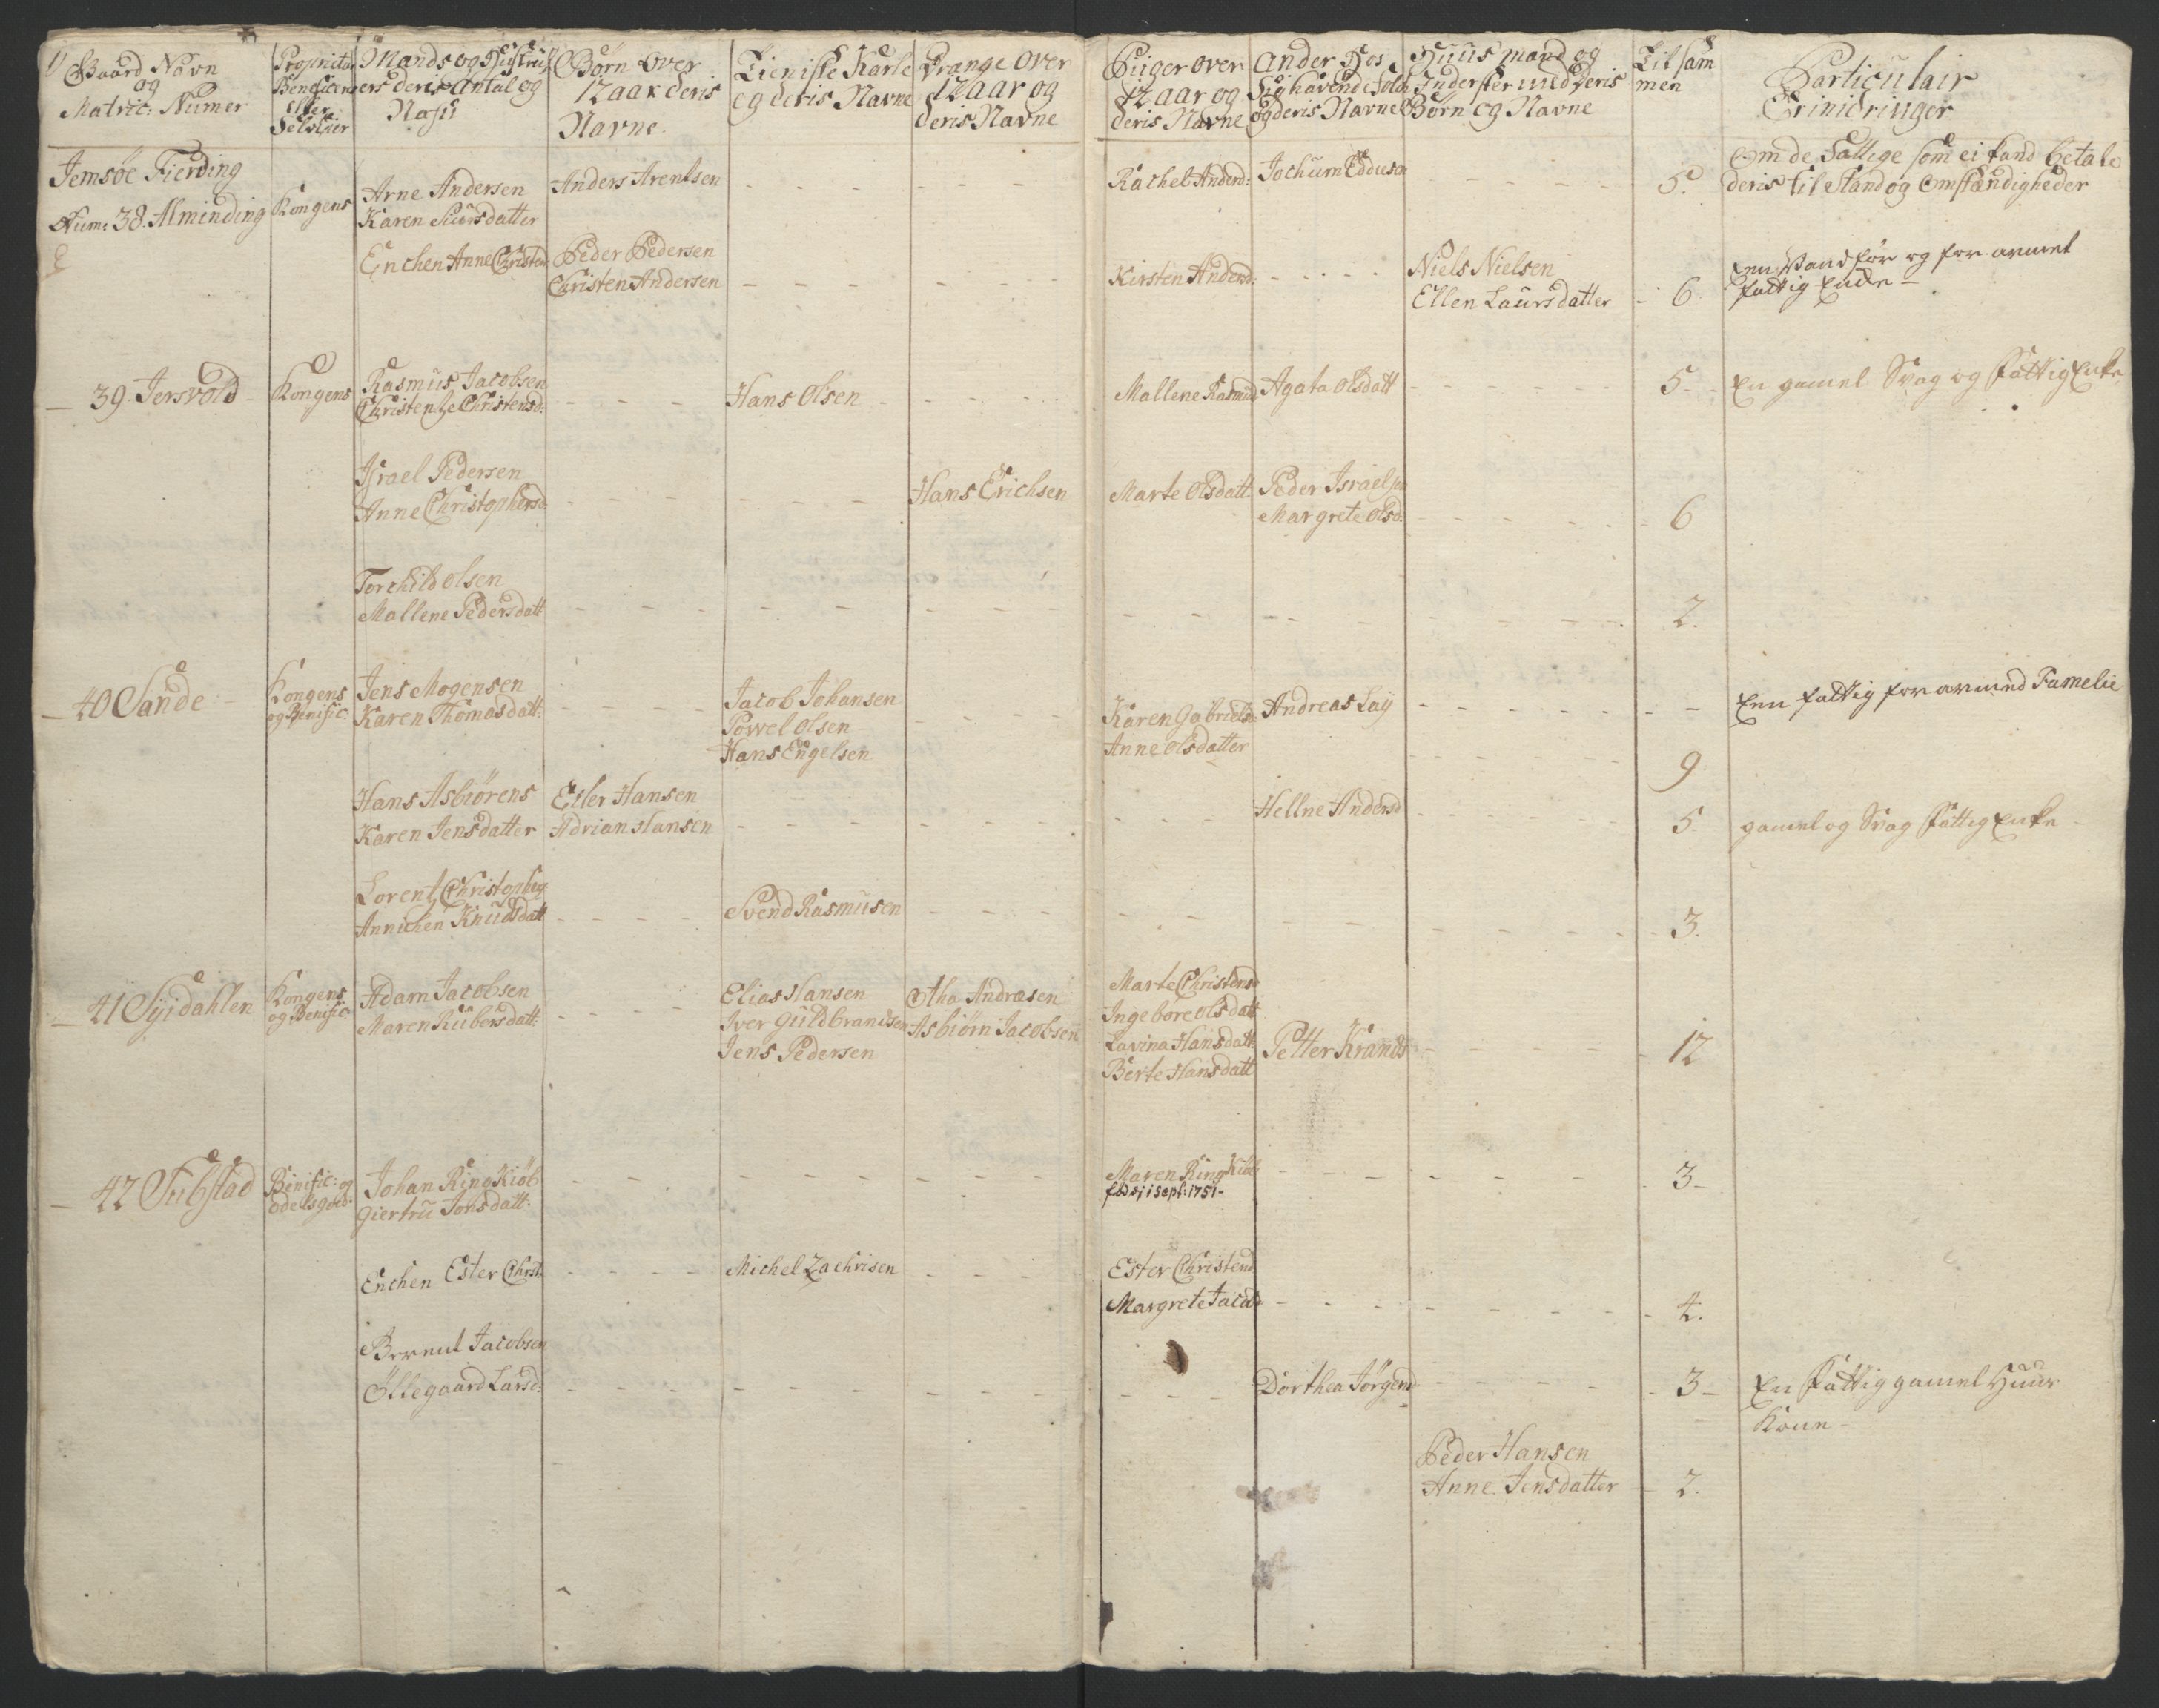 Gaard Navn
og
Matric: Numer
Proprietær
Beneficeret
eller
Selveier
Mands og Hustru
ers deris Antal og
Nafn
Børn over
12 aar deris
Navne
Tieniste Karle
og deris Navne
Drænge over
12 aar og
deris Navne
Piiger over
12 aar og
deris Navne
Ander Hos
Sig havende Folch
og deris Navne
Huus mand og
Inderster med deris
Børn og Navne
Til sam
men
Particulair
Erindringer
Jemsöe Fierding
Num: 38. Alminding
Kongens
Arne Andersen
Karen Siursdatter
Anders Arentsen
Rachel Anders:
Jochum
5.
Om de Fattige som ei kand betale
deris tilstand og Omstændigheder
Enchen Anne Christen
Peder Pedersen
Christen Andersen
Kirsten Andersd:
Niels Nielsen
Ellen Laursdatter
6
en Vandför og for armet
fattig Enke
39. Jersvold
Kongens
Rasmus Jacobsen
Christense Christensd:
Hans Olsen
Mallene Rasmusd
Agata Olsdatt
5
En gamel Svag og Fattig Enke
Israel Pedersen
Anne Christophersd
Hans Erichsen
Marte Olsdatt
Peder Israelsen
Margrete Olsd:
6
Torchild Olsen
Mallene Pedersdatt
2.
40 Sande
Kongens
og Benific:
Jens Mogensen
Karen Thomasdatt:
Jacob Johansen
Powel Olsen
Hans Engelsen
Karen Gabrielsd:
Anne Olsdatter
Andreas Lay
9
Een fattig forarmed Famelie
Hans Asbiørens
Karen Jensdatter
Eiler Hansen
Adrian Hansen
Hellne Andersd
5.
gamel og Svag Fattig Enke
Lorentz Christophers
Annichen Knudsdatt
Svend Rasmusen
3.
41 Syidahlen
Kongens
og Benific:
Adam Jacobsen
Maren Rubersdatt:
Elias Hansen
Iver Guldbrandsen
Jens Pedersen
Atha Andræsen
Asbiørn Jacobsen
Marte Christensd
Ingebore Olsdatt
Lavina Hansdatt
Berte Hansdatt
Petter Krands
12
42 Tubstad
Benific: og
Odelsgods:
Johan Ring Kiöb
Giertru Johsdatt:
Maren Ring Kiöb
föd 1 Sept: 1751
3
Enchen Ester Christ:
Michel Zachrisen
Ester Christend
Margrete Jacobs
4.
Bernt Jacobsen
Öllegaard Larsd:
Dorthea Jörgens
3
En Fattig gamel Huus
Kone
Peder Hansen
Anne Jensdatter
2.